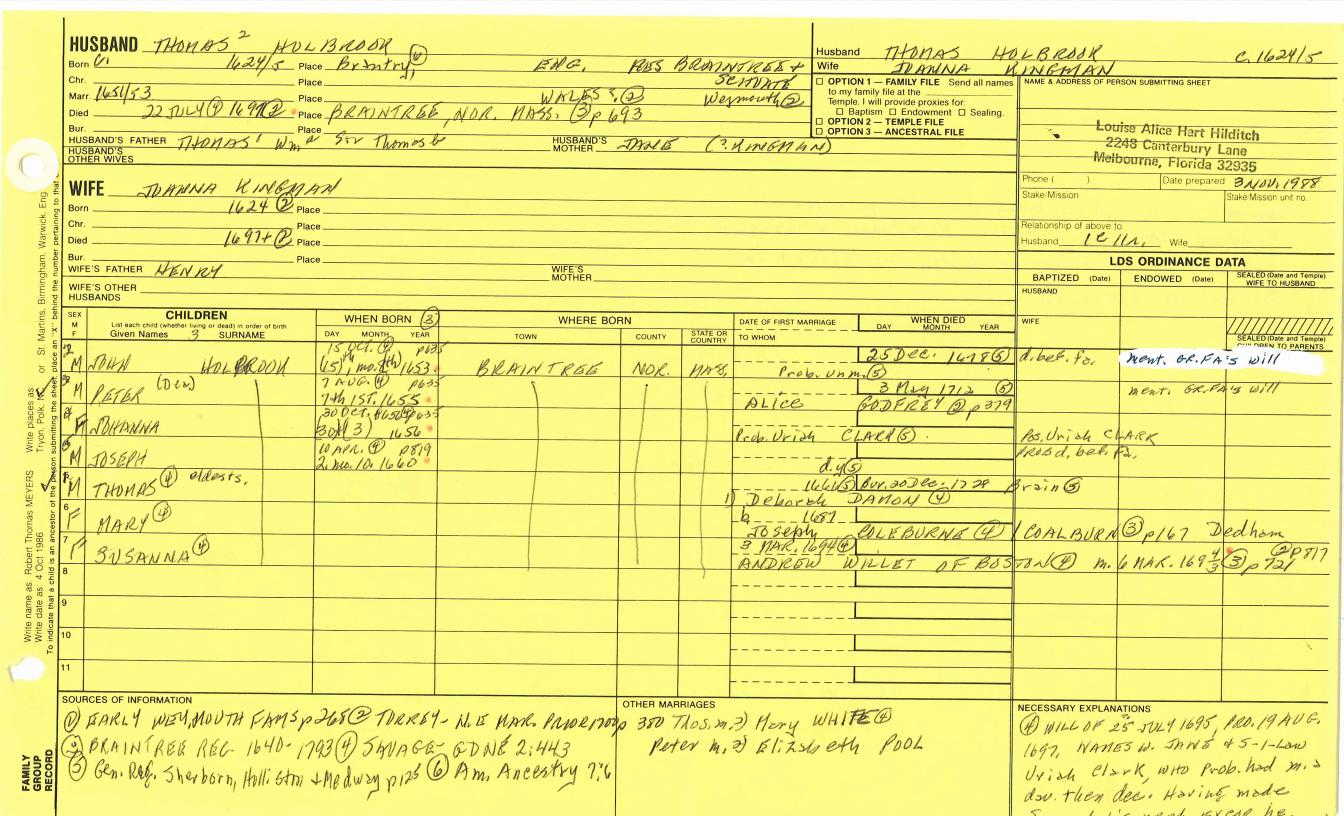 HUSBAND THOMAS 2 HOLBROOK
Born C. 1624/5 Place Brantry (6) ENG. RES BRAINTREE +
Chr. Place SCITUATE
Marr. 1651/53 Place WALES S. (2) Weymouth (2)
Died 22 JULY (4) 1697 (2) Place BRAINTREE, NOR. MASS. (3) p 693
Bur. Place
HUSBAND'S FATHER THOMAS 1 Wm a Sir Thomas b HUSBAND'S MOTHER JANE (?KINGMAN)
HUSBAND'S OTHER WIVES
Husband THOMAS HOLBROOK C. 1624/5
Wife JOANNA KINGMAN
OPTION 1 — FAMILY FILE Send all names
to my family file at the
Temple. I will provide proxies for
Baptism Endowment Sealing.
OPTION 2 — TEMPLE FILE
OPTION 3 — ANCESTRAL FILE
NAME & ADDRESS OF PERSON SUBMITTING SHEET
Louise Alice Hart Hilditch
2248 Canterbury Lane
Melbourne, Florida 32935
Phone ( ) Date prepared 3 NOV. 1988
Stake/Mission Stake/Mission unit no.
Relationship of above to
Husband Wife
WIFE JOANNA KINGMAN
Born 1624 (2) Place
Chr. Place
Died 1697+ (2) Place
Bur. Place
WIFE'S FATHER HENRY WIFE'S MOTHER
WIFE'S OTHER HUSBANDS
LDS ORDINANCE DATA
BAPTIZED (Date) ENDOWED (Date) SEALED (Date and Temple) WIFE TO HUSBAND
HUSBAND
WIFE
SEALED (Date and Temple) CHILDREN TO PARENTS
SEX M F
CHILDREN
List each child (whether living or dead) in order of birth
Given Names 3 SURNAME
WHEN BORN (3)
DAY MONTH YEAR
WHERE BORN
TOWN COUNTY STATE OR COUNTRY
DATE OF FIRST MARRIAGE
TO WHOM
WHEN DIED
DAY MONTH YEAR
15 OCT. (4) p635 25 Dec. 1678 (5) d. bef. fa. ment. GR.FA'S will
M JOHN HOLBROOK 1653 BRAINTREE NOR. MAS. Prob. unm. (5)
7 AUG. (4) p635 3 May 1712 (5) ment. GR.FA'S will
M PETER (Dea) 7th 1ST. 1655 ALICE GODFREY (2) p379
30 OCT. 1656 (4) p635
F JOHANNA 30 (3) 1656 Prob. Uriah CLARK (5). Pos. Uriah CLARK
10 APR. (4) p819 prob d. bef. Fa.
M JOSEPH 2. mo. 10. 1660 d.y (5)
M THOMAS (4) eldests. Bur. 20 Dec. 1728 Brain (5)
1) Deborah DAMON (4)
6 F MARY (4) b 1687
Joseph COLEBURNE (4) / COALBURN (3) p167 Dedham
7 F SUSANNA (4) 3 MAR. 1694 (4) (2) p817
ANDREW WILLET OF BOSTON (4) m. 6 MAR. 169 4/3 (3) p 721
8
9
10
11
SOURCES OF INFORMATION
(1) EARLY WEYMOUTH FAMS p265 (2) TORREY- N.E MAR. PRIOR 1700 p 380
(3) BRAINTREE REG- 1640-1793 (4) SAVAGE- GDNE 2:443
(5) Gen. Reg. Sherborn, Holliston + Medway p125 (6) Am. Ancestry 7:6
OTHER MARRIAGES
Thos. m. 2) Mary WHITE (4)
Peter m. 2) Elizabeth POOL
NECESSARY EXPLANATIONS
(4) WILL OF 25 JULY 1695, PRO. 19 AUG.
1697, NAMES W. JANE & S-I-Law
Uriah Clark, who Prob. had m. a
dau. then dec. Having made
FAMILY GROUP RECORD
Write name as: Robert Thomas MEYERS Write places as: Tryon, Polk, or St. Martins, Birmingham, Warwick, Eng
Write date as: 4 Oct 1986
To indicate that a child is an ancestor of the person submitting the sheet, place an "X" behind the number pertaining to that